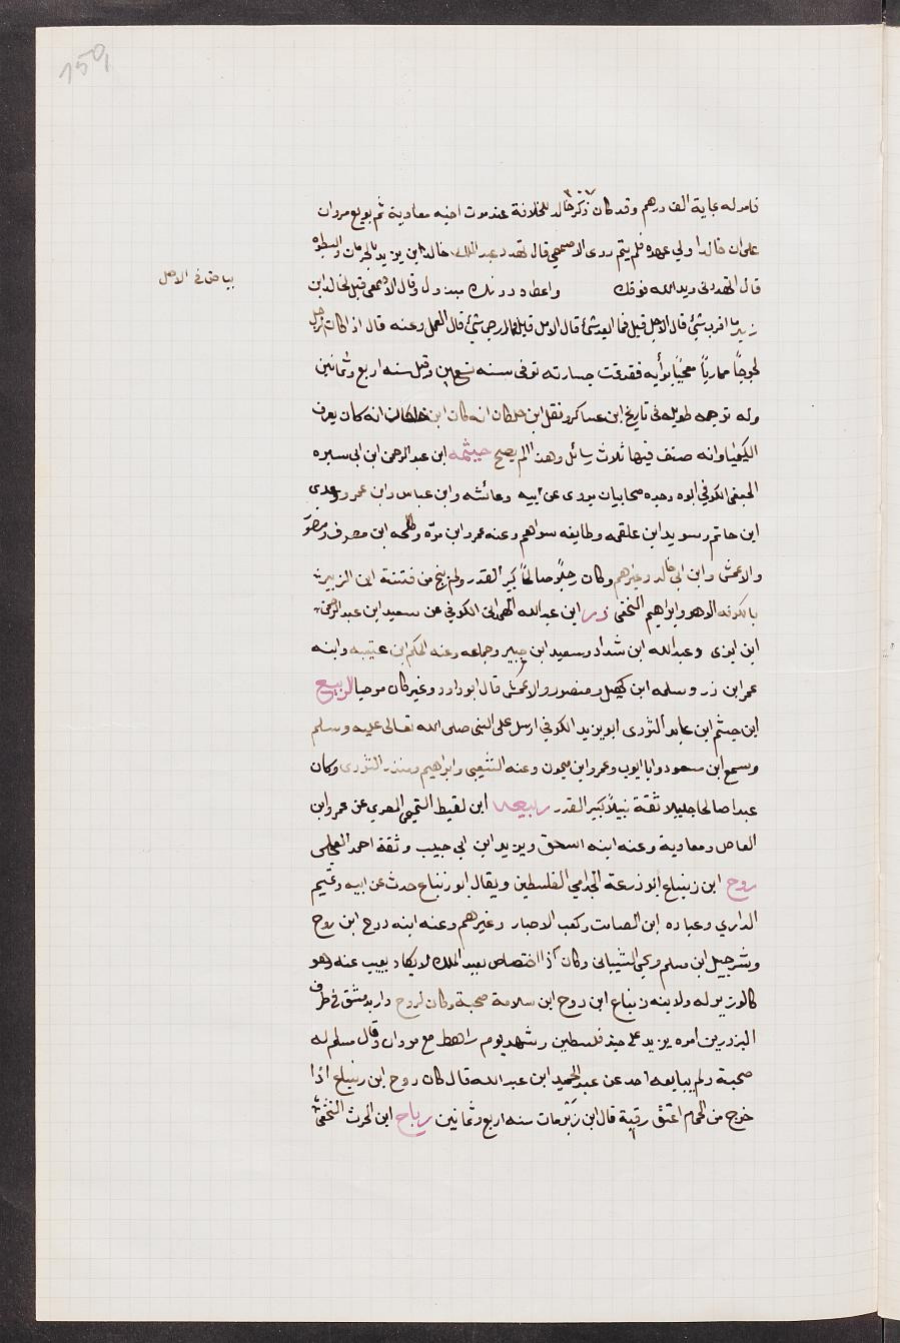 150
فامر له بماية الف درهم وقد كان ذكر خالد للخلافة عند موت اخيه معاوية ثم بويع مروان
على ان خالدا ولي عهده فلم يتم روى الاصمعي قال تهدد عبد الملك خالد ابن يزيد بالحرمان والسطوة
بياض في الاصل
قال اتهددنى ويد الله فوقك واعطاه دونك مبذول وقال الاصمعى قيل لخالد ابن
يزيد ما اقرب شئ قال الاجل قيل فما ابعد شئ قال الامل قيل فما ارجى شئ قال العمل وعنه قال اذا كان الرجل
لجوجًا مماريًا معجبًا برأيه فقد تمت خسارته توفى سنه تسعين وقيل سنه اربع وثمانين
وله ترجمه طويله في تاريخ ابن عساكر ونقل ابن خلكان انه كان ابن خلكان انه كان يعرف
الكيمياء وانه صنف فيها ثلاث رسائل وهذا لم يصح خيثمه ابن عبد الرحمن ابن ابى سبره
الجعفى الكوفي ابوه وجده صحابيان يروى عن ابيه وعائشه وابن عباس وابن عمر وعدى
ابن حاتم وسويد ابن علقمه وطايفه سواهم وعنه عمرو ابن مرّه وطلحه ابن مصرف ومنصور
والاعمش وابن ابى خالد وغيرهم وكان رجلًا صالحًا كبير القدر ولم ينج من فتنة ابن الزبير
بالكوفه الا هو وابراهيم النخعى ذر ابن عبد الله الهمدانى الكوفي عن سعيد ابن عبد الرحمن
ابن ابزى وعبد الله ابن شداد وسعيد ابن جبير وجماعه وعنه الحكم ابن عتيبه وابنه
عمر ابن ذر وسلمه ابن كهيل ومنصور والاعمش قال ابو داود وغيره كان مرجيا الربيع
ابن خيثم ابن عايذ الثورى ابو يزيد الكوفي ارسل على النبى صلى الله تعالى عليه وسلم
وسمع ابن مسعود وابا ايوب وعمرو ابن ميمون وعنه الشعبى وابراهيم ومنذر الثورى وكان
عبدا صالحا جليلا ثقة نبيلًا كبير القدر ربيعه ابن لقيط التجيبى المصري عن عمرو ابن
العاص ومعاوية وعنه ابنه اسحق ويزيد ابن ابى حبيب وثقة احمد العجلى
روح ابن زنباع ابو زرعة الجذامي الفلسطين ويقال ابو زنباع حدث عن ابيه وتميم
الداري وعباده ابن الصامت وكعب الاحبار وغيرهم وعنه ابنه روح ابن روح
وشرحبيل ابن مسلم ويحي الشيبانى وكان ذا اختصاص بعبد الملك لا يكاد يغيب عنه وهو
كالوزير له ولابنه زنباع ابن روح ابن سلامة صحبة وكان لروح دار بدمشق في طرف
البزورين امره يزيد على جند فلسطين وشهد يوم راهط مع مروان وقال مسلم له
صحبة ولم يبايعه احد عن عبد الحميد ابن عبد الله قال كان روح ابن زنباع اذا
خرج من الحمام اعتق رقبة قال ابن زبر مات سنه اربع وثمانين رباح ابن الحرث النخعى